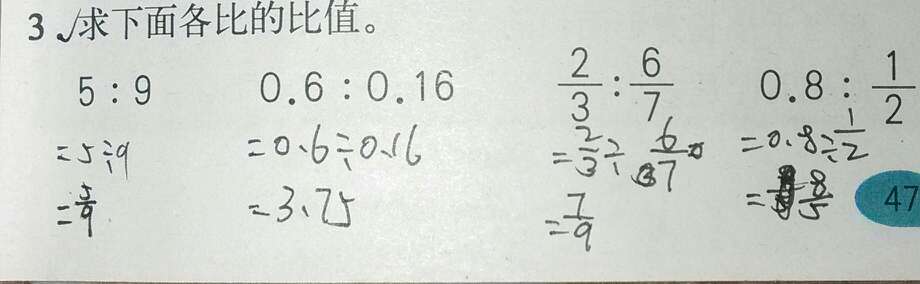 3 √求下面各比的比值。
5 : 9  0.6 : 0.16  2/3 : 6/7  0.8 : 1/2
=5÷9  =0.6÷0.16  =2/3÷6/7  =0.8÷1/2
=5/9  =3.75  =7/9  =8/5
47